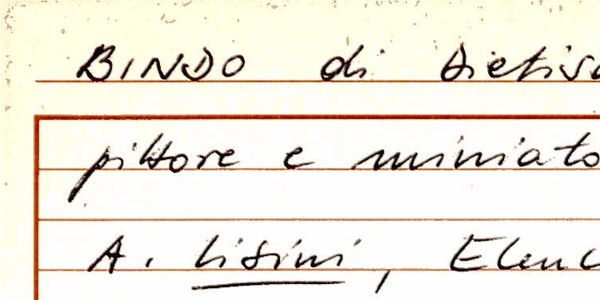 BINDO di Dietis
pittore e miniato
A. Lisini, Elenc